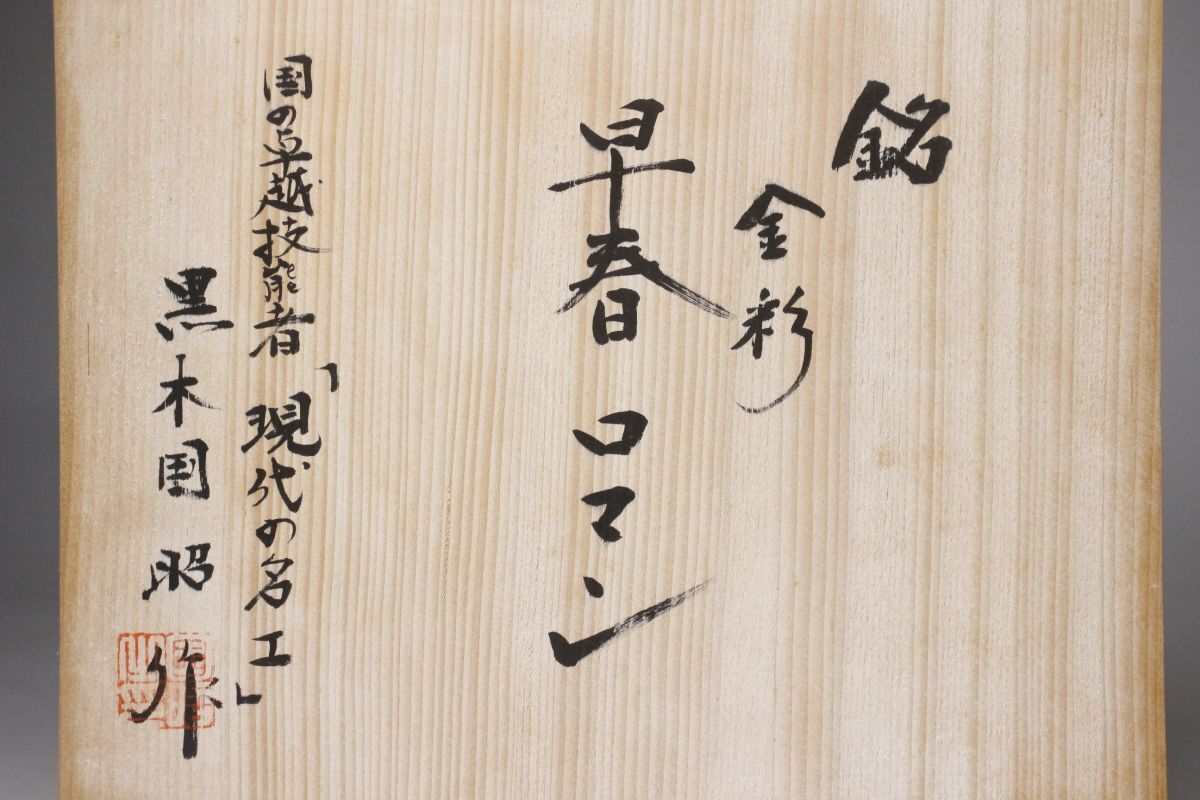 銘
金彩
早春ロマン
国の卓越技能者「現代の名工」
黒木国昭作